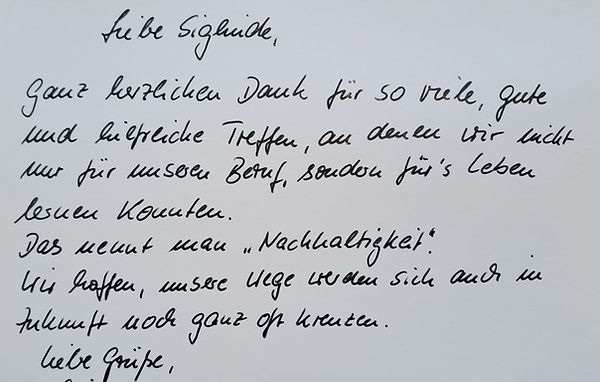 Liebe Siglinde,
Ganz herzlichen Dank für so viele, gute
und hilfreiche Treffen, an denen wir nicht
nur für unseren Beruf, sondern für's Leben
lernen konnten.
Das nennt man „Nachhaltigkeit".
Wir hoffen, unsere Wege werden sich auch in
Zukunft noch ganz oft kreuzen.
Liebe Grüße,